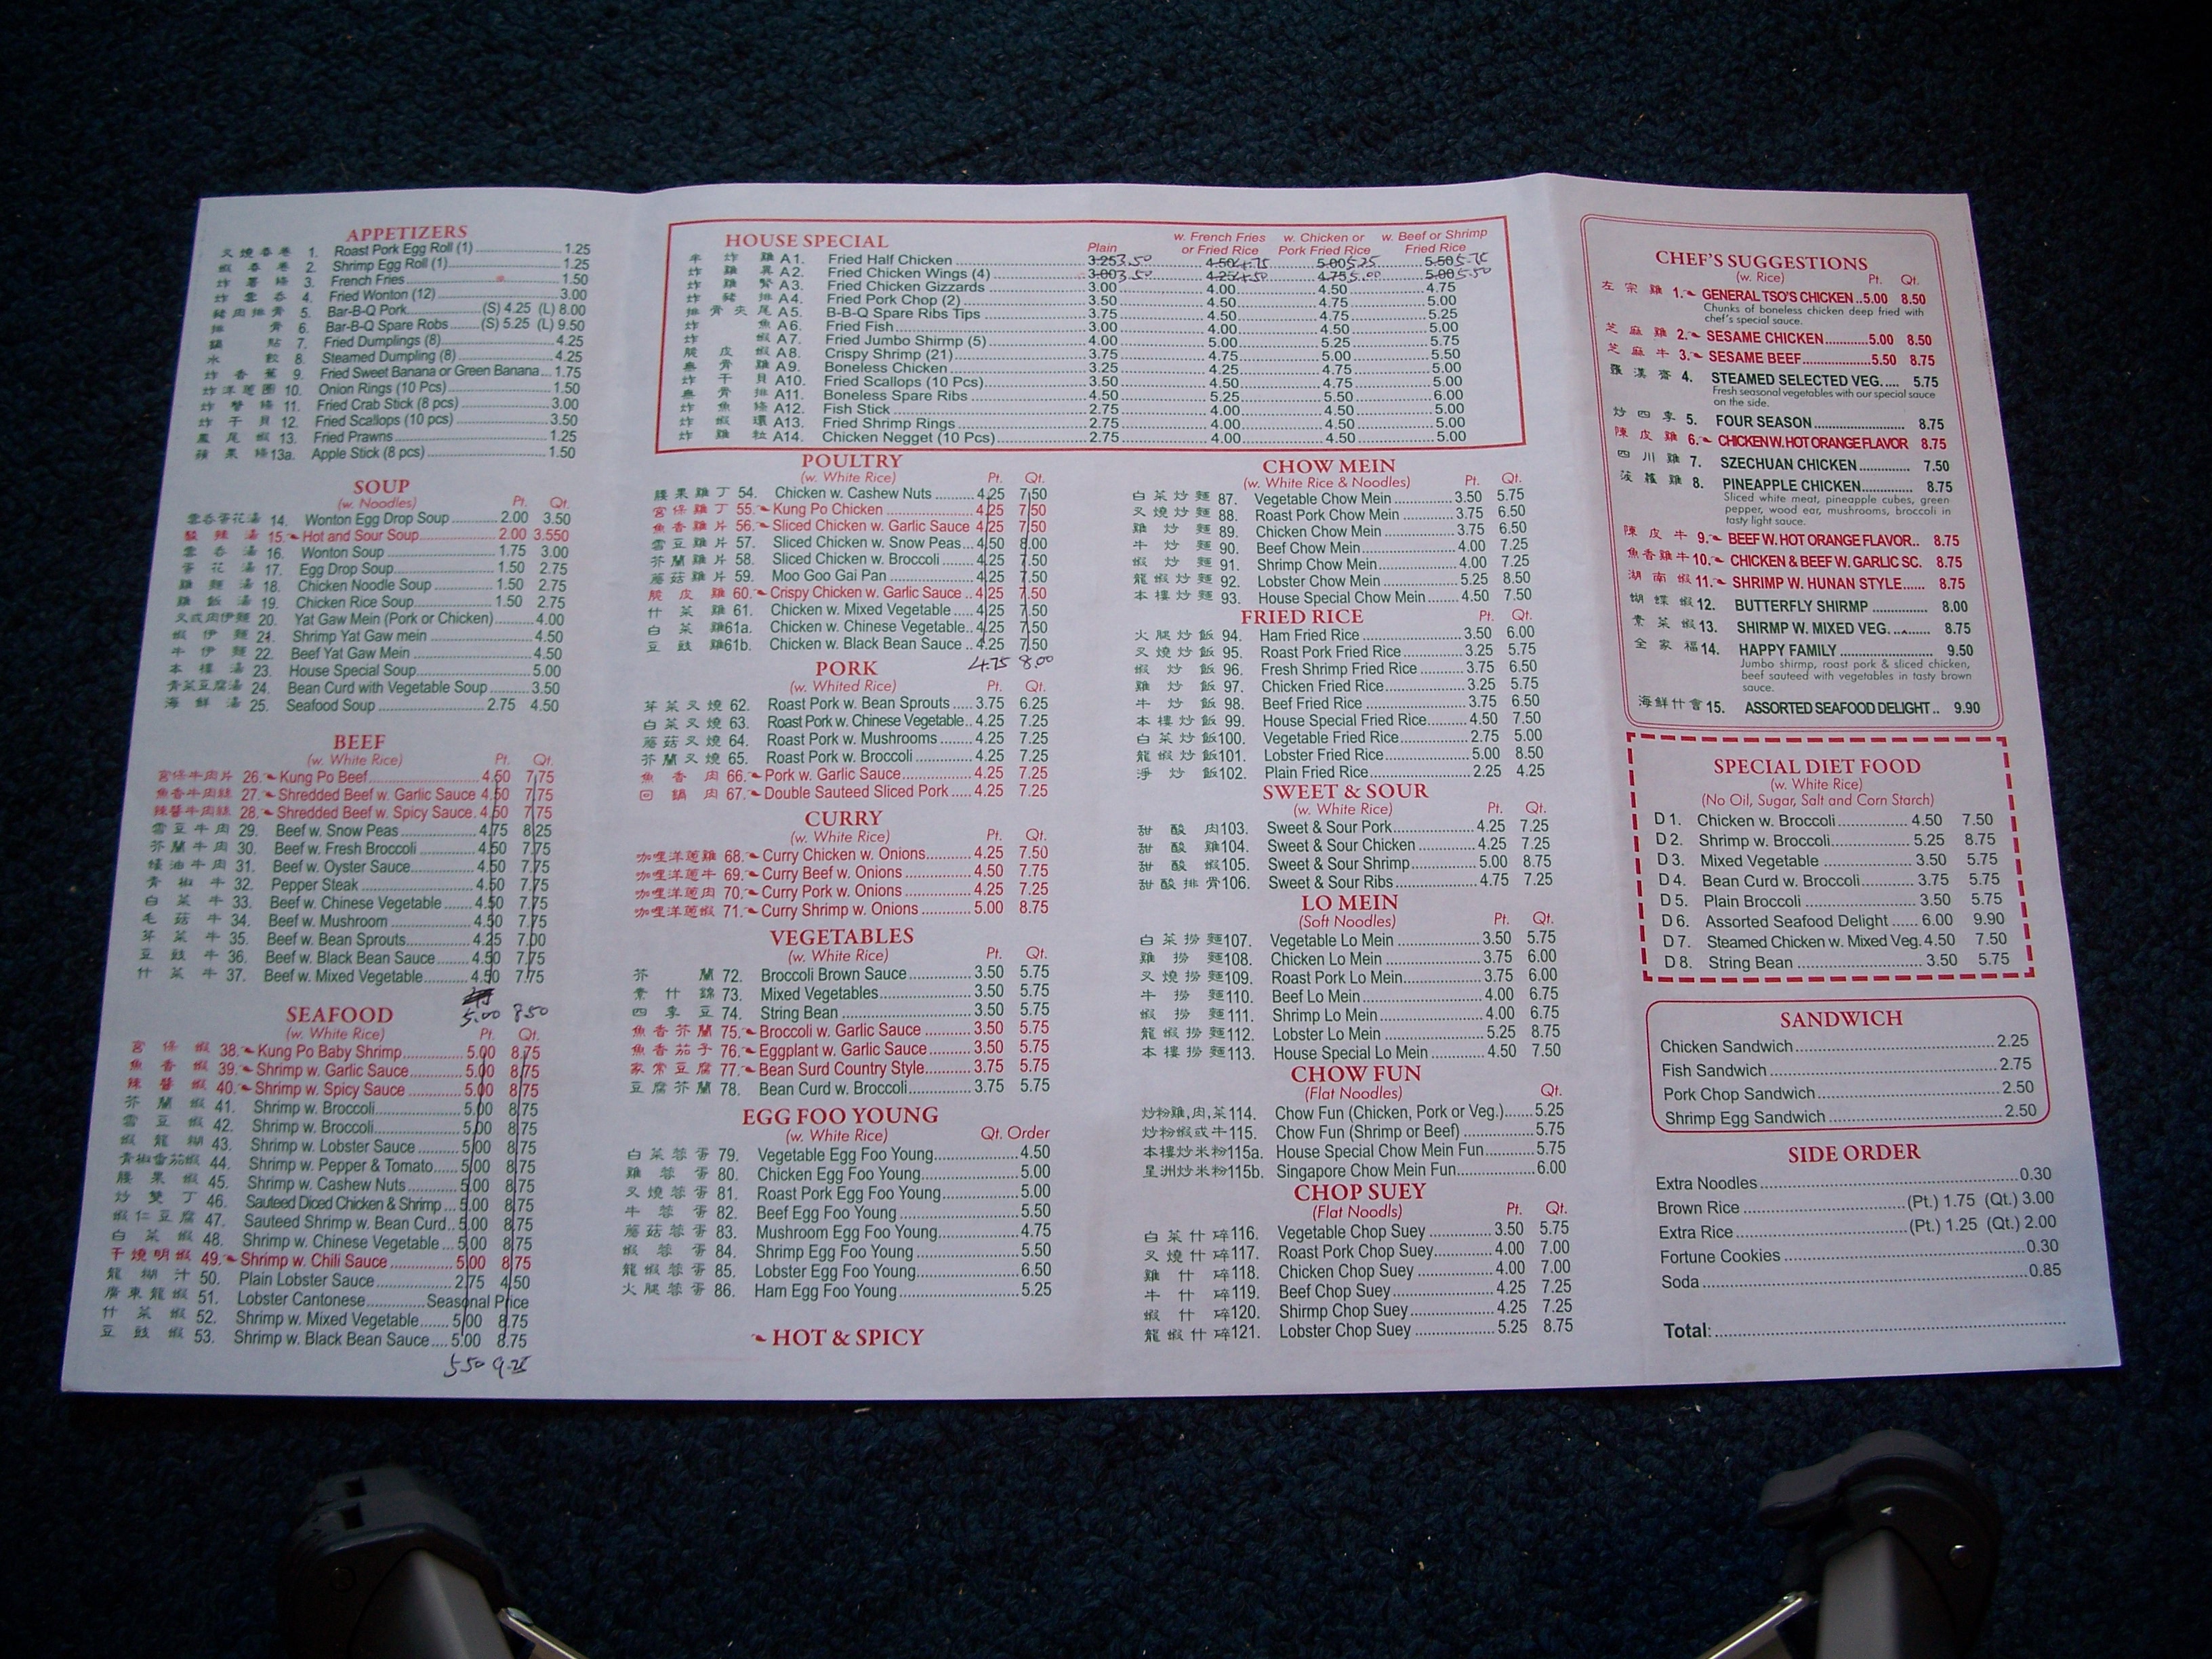 APPETIZERS
叉燒春卷 1. Roast Pork Egg Roll (1) 1.25
蝦春卷 2. Shrimp Egg Roll (1) 1.25
炸薯條 3. French Fries 1.50
炸雲吞 4. Fried Wonton (12) 3.00
豬肉排骨 5. Bar-B-Q Pork (S) 4.25 (L) 8.00
排骨 6. Bar-B-Q Spare Robs (S) 5.25 (L) 9.50
鍋貼 7. Fried Dumplings (8) 4.25
水餃 8. Steamed Dumpling (8) 4.25
炸香蕉 9. Fried Sweet Banana or Green Banana 1.75
炸洋蔥圈 10. Onion Rings (10 Pcs) 1.50
炸蟹條 11. Fried Crab Stick (8 pcs) 3.00
炸干貝 12. Fried Scallops (10 pcs) 3.50
鳳尾蝦 13. Fried Prawns 1.25
蘋果條 13a. Apple Stick (8 pcs) 1.50
SOUP
(w. Noodles) Pt. Qt.
雲吞蛋花湯 14. Wonton Egg Drop Soup 2.00 3.50
酸辣湯 15. Hot and Sour Soup 2.00 3.550
雲吞湯 16. Wonton Soup 1.75 3.00
蛋花湯 17. Egg Drop Soup 1.50 2.75
雞麵湯 18. Chicken Noodle Soup 1.50 2.75
雞飯湯 19. Chicken Rice Soup 1.50 2.75
叉或肉伊麵 20. Yat Gaw Mein (Pork or Chicken) 4.00
蝦伊麵 21. Shrimp Yat Gaw mein 4.50
牛伊麵 22. Beef Yat Gaw Mein 4.50
本樓湯 23. House Special Soup 5.00
青菜豆腐湯 24. Bean Curd with Vegetable Soup 3.50
海鮮湯 25. Seafood Soup 2.75 4.50
BEEF
(w. White Rice) Pt. Qt.
宮保牛肉片 26. Kung Po Beef 4.50 7.75
魚香牛肉絲 27. Shredded Beef w. Garlic Sauce 4.50 7.75
辣醬牛肉絲 28. Shredded Beef w. Spicy Sauce 4.50 7.75
雪豆牛肉 29. Beef w. Snow Peas 4.75 8.25
芥蘭牛肉 30. Beef w. Fresh Broccoli 4.50 7.75
蠔油牛肉 31. Beef w. Oyster Sauce 4.50 7.75
青椒牛 32. Pepper Steak 4.50 7.75
白菜牛 33. Beef w. Chinese Vegetable 4.50 7.75
毛菇牛 34. Beef w. Mushroom 4.50 7.75
芽菜牛 35. Beef w. Bean Sprouts 4.25 7.00
豆豉牛 36. Beef w. Black Bean Sauce 4.50 7.75
什菜牛 37. Beef w. Mixed Vegetable 4.50 7.75
5.00 8.50
SEAFOOD
(w. White Rice) Pt. Qt.
宮保蝦 38. Kung Po Baby Shrimp 5.00 8.75
魚香蝦 39. Shrimp w. Garlic Sauce 5.00 8.75
辣醬蝦 40. Shrimp w. Spicy Sauce 5.00 8.75
芥蘭蝦 41. Shrimp w. Broccoli 5.00 8.75
雪豆蝦 42. Shrimp w. Broccoli 5.00 8.75
蝦龍糊 43. Shrimp w. Lobster Sauce 5.00 8.75
青椒番茄蝦 44. Shrimp w. Pepper & Tomato 5.00 8.75
腰果蝦 45. Shrimp w. Cashew Nuts 5.00 8.75
炒雙丁 46. Sauteed Diced Chicken & Shrimp 5.00 8.75
蝦仁豆腐 47. Sauteed Shrimp w. Bean Curd 5.00 8.75
白菜蝦 48. Shrimp w. Chinese Vegetable 5.00 8.75
干燒明蝦 49. Shrimp w. Chili Sauce 5.00 8.75
龍糊汁 50. Plain Lobster Sauce 2.75 4.50
廣東龍蝦 51. Lobster Cantonese Seasonal Price
什菜蝦 52. Shrimp w. Mixed Vegetable 5.00 8.75
豆豉蝦 53. Shrimp w. Black Bean Sauce 5.00 8.75
5.50 9.25
HOUSE SPECIAL Plain w. French Fries or Fried Rice w. Chicken or Pork Fried Rice w. Beef or Shrimp Fried Rice
半炸雞 A1. Fried Half Chicken 3.25 3.50 4.50 4.75 5.00 5.25 5.50 5.75
炸雞翼 A2. Fried Chicken Wings (4) 3.00 3.50 4.25 4.50 4.75 5.00 5.00 5.50
炸雞腎 A3. Fried Chicken Gizzards 3.00 4.00 4.50 4.75
炸豬排 A4. Fried Pork Chop (2) 3.50 4.50 4.75 5.00
排骨尖尾 A5. B-B-Q Spare Ribs Tips 3.75 4.50 4.75 5.25
炸魚 A6. Fried Fish 3.00 4.00 4.50 5.00
炸蝦 A7. Fried Jumbo Shirmp (5) 4.00 5.00 5.25 5.75
脆皮蝦 A8. Crispy Shrimp (21) 3.75 4.75 5.00 5.50
無骨雞 A9. Boneless Chicken 3.25 4.25 4.75 5.00
炸干貝 A10. Fried Scallops (10 Pcs) 3.50 4.50 4.75 5.00
無骨排 A11. Boneless Spare Ribs 4.50 5.25 5.50 6.00
炸魚條 A12. Fish Stick 2.75 4.00 4.50 5.00
炸蝦環 A13. Fried Shrimp Rings 2.75 4.00 4.50 5.00
炸雞粒 A14. Chicken Negget (10 Pcs) 2.75 4.00 4.50 5.00
POULTRY
(w. White Rice) Pt. Qt.
腰果雞丁 54. Chicken w. Cashew Nuts 4.25 7.50
宮保雞丁 55. Kung Po Chicken 4.25 7.50
魚香雞片 56. Sliced Chicken w. Garlic Sauce 4.25 7.50
雪豆雞片 57. Sliced Chicken w. Snow Peas 4.50 8.00
芥蘭雞片 58. Sliced Chicken w. Broccoli 4.25 7.50
蘑菇雞片 59. Moo Goo Gai Pan 4.25 7.50
脆皮雞 60. Crispy Chicken w. Garlic Sauce 4.25 7.50
什菜雞 61. Chicken w. Mixed Vegetable 4.25 7.50
白菜雞 61a. Chicken w. Chinese Vegetable 4.25 7.50
豆豉雞 61b. Chicken w. Black Bean Sauce 4.25 7.50
4.75 8.00
PORK
(w. Whited Rice) Pt. Qt.
芽菜叉燒 62. Roast Pork w. Bean Sprouts 3.75 6.25
白菜叉燒 63. Roast Pork w. Chinese Vegetable 4.25 7.25
蘑菇叉燒 64. Roast Pork w. Mushrooms 4.25 7.25
芥蘭叉燒 65. Roast Pork w. Broccoli 4.25 7.25
魚香肉 66. Pork w. Garlic Sauce 4.25 7.25
回鍋肉 67. Double Sauteed Sliced Pork 4.25 7.25
CURRY
(w. White Rice) Pt. Qt.
咖喱洋蔥雞 68. Curry Chicken w. Onions 4.25 7.50
咖喱洋蔥牛 69. Curry Beef w. Onions 4.50 7.75
咖喱洋蔥肉 70. Curry Pork w. Onions 4.25 7.25
咖喱洋蔥蝦 71. Curry Shrimp w. Onions 5.00 8.75
VEGETABLES
(w. White Rice) Pt. Qt.
芥蘭 72. Broccoli Brown Sauce 3.50 5.75
素什錦 73. Mixed Vegetables 3.50 5.75
四季豆 74. String Bean 3.50 5.75
魚香芥蘭 75. Broccoli w. Garlic Sauce 3.50 5.75
魚香茄子 76. Eggplant w. Garlic Sauce 3.50 5.75
家常豆腐 77. Bean Surd Country Style 3.75 5.75
豆腐芥蘭 78. Bean Curd w. Broccoli 3.75 5.75
EGG FOO YOUNG
(w. White Rice) Qt. Order
白菜蓉蛋 79. Vegetable Egg Foo Young 4.50
雞蓉蛋 80. Chicken Egg Foo Young 5.00
叉燒蓉蛋 81. Roast Pork Egg Foo Young 5.00
牛蓉蛋 82. Beef Egg Foo Young 5.50
蘑菇蓉蛋 83. Mushroom Egg Foo Young 4.75
蝦蓉蛋 84. Shrimp Egg Foo Young 5.50
龍蝦蓉蛋 85. Lobster Egg Foo Young 6.50
火腿蓉蛋 86. Ham Egg Foo Young 5.25
HOT & SPICY
CHOW MEIN
(w. White Rice & Noodles) Pt. Qt.
白菜炒麵 87. Vegetable Chow Mein 3.50 5.75
叉燒炒麵 88. Roast Pork Chow Mein 3.75 6.50
雞炒麵 89. Chicken Chow Mein 3.75 6.50
牛炒麵 90. Beef Chow Mein 4.00 7.25
蝦炒麵 91. Shrimp Chow Mein 4.00 7.25
龍蝦炒麵 92. Lobster Chow Mein 5.25 8.50
本樓炒麵 93. House Special Chow Mein 4.50 7.50
FRIED RICE Pt. Qt.
火腿炒飯 94. Ham Fried Rice 3.50 6.00
叉燒炒飯 95. Roast Pork Fried Rice 3.25 5.75
蝦炒飯 96. Fresh Shrimp Fried Rice 3.75 6.50
雞炒飯 97. Chicken Fried Rice 3.25 5.75
牛炒飯 98. Beef Fried Rice 3.75 6.50
本樓炒飯 99. House Special Fried Rice 4.50 7.50
白菜炒飯 100. Vegetable Fried Rice 2.75 5.00
龍蝦炒飯 101. Lobster Fried Rice 5.00 8.50
淨炒飯 102. Plain Fried Rice 2.25 4.25
SWEET & SOUR
(w. White Rice) Pt. Qt.
甜酸肉 103. Sweet & Sour Pork 4.25 7.25
甜酸雞 104. Sweet & Sour Chicken 4.25 7.25
甜酸蝦 105. Sweet & Sour Shrimp 5.00 8.75
甜酸排骨 106. Sweet & Sour Ribs 4.75 7.25
LO MEIN
(Soft Noodles) Pt. Qt.
白菜撈麵 107. Vegetable Lo Mein 3.50 5.75
雞撈麵 108. Chicken Lo Mein 3.75 6.00
叉燒撈麵 109. Roast Pork Lo Mein 3.75 6.00
牛撈麵 110. Beef Lo Mein 4.00 6.75
蝦撈麵 111. Shrimp Lo Mein 4.00 6.75
龍蝦撈麵 112. Lobster Lo Mein 5.25 8.75
本樓撈麵 113. House Special Lo Mein 4.50 7.50
CHOW FUN
(Flat Noodles) Qt.
炒粉雞,肉,菜 114. Chow Fun (Chicken, Pork or Veg.) 5.25
炒粉蝦或牛 115. Chow Fun (Shrimp or Beef) 5.75
本樓炒米粉 115a. House Special Chow Mein Fun 5.75
星洲炒米粉 115b. Singapore Chow Mein Fun 6.00
CHOP SUEY
(Flat Noodls) Pt. Qt.
白菜什碎 116. Vegetable Chop Suey 3.50 5.75
叉燒什碎 117. Roast Pork Chop Suey 4.00 7.00
雞什碎 118. Chicken Chop Suey 4.00 7.00
牛什碎 119. Beef Chop Suey 4.25 7.25
蝦什碎 120. Shirmp Chop Suey 4.25 7.25
龍蝦什碎 121. Lobster Chop Suey 5.25 8.75
CHEF'S SUGGESTIONS
(w. Rice) Pt. Qt.
左宗雞 1. GENERAL TSO'S CHICKEN 5.00 8.50
Chunks of boneless chicken deep fried with
chef's special sauce.
芝麻雞 2. SESAME CHICKEN 5.00 8.50
芝麻牛 3. SESAME BEEF 5.50 8.75
羅漢齋 4. STEAMED SELECTED VEG. 5.75
Fresh seasonal vegetables with our special sauce
on the side.
炒四季 5. FOUR SEASON 8.75
陳皮雞 6. CHICKEN W. HOT ORANGE FLAVOR 8.75
四川雞 7. SZECHUAN CHICKEN 7.50
菠蘿雞 8. PINEAPPLE CHICKEN 8.75
Sliced white meat, pineapple cubes, green
pepper, wood ear, mushrooms, broccoli in
tasty light sauce.
陳皮牛 9. BEEF W. HOT ORANGE FLAVOR 8.75
魚香雞牛 10. CHICKEN & BEEF W. GARLIC SC. 8.75
湖南蝦 11. SHRIMP W. HUNAN STYLE 8.75
蝴蝶蝦 12. BUTTERFLY SHIRMP 8.00
素菜蝦 13. SHIRMP W. MIXED VEG. 8.75
全家福 14. HAPPY FAMILY 9.50
Jumbo shirmp, roast pork & sliced chicken,
beef sauteed with vegetables in tasty brown
sauce.
海鮮什會 15. ASSORTED SEAFOOD DELIGHT 9.90
SPECIAL DIET FOOD
(w. White Rice)
(No Oil, Sugar, Salt and Corn Starch)
D 1. Chicken w. Broccoli 4.50 7.50
D 2. Shrimp w. Broccoli 5.25 8.75
D 3. Mixed Vegetable 3.50 5.75
D 4. Bean Curd w. Broccoli 3.75 5.75
D 5. Plain Broccoli 3.50 5.75
D 6. Assorted Seafood Delight 6.00 9.90
D 7. Steamed Chicken w. Mixed Veg. 4.50 7.50
D 8. String Bean 3.50 5.75
SANDWICH
Chicken Sandwich 2.25
Fish Sandwich 2.75
Pork Chop Sandwich 2.50
Shrimp Egg Sandwich 2.50
SIDE ORDER
Extra Noodles 0.30
Brown Rice (Pt.) 1.75 (Qt.) 3.00
Extra Rice (Pt.) 1.25 (Qt.) 2.00
Fortune Cookies 0.30
Soda 0.85
Total: